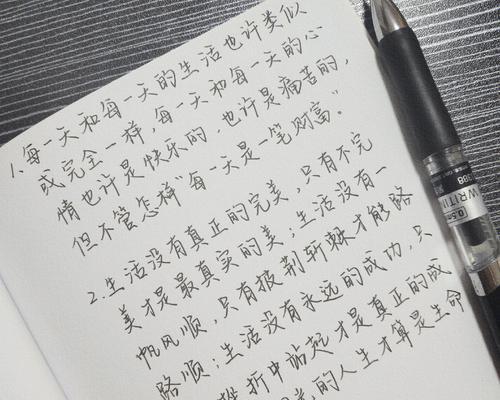 1.每一天和每一天的生活也许类似
或完全一样，每一天和每一天的心
情也许是快乐的，也许是痛苦的，
但不管怎样"每一天是一笔财富"。
2.生活没有真正的完美，只有不完
美才是最真实的美；生活没有一
帆风顺，只有披荆斩棘才能路
路顺；生活没有永远的成功，只
挫折中站起才是真正的成
的人生才算是生命
0.5
WRITIN